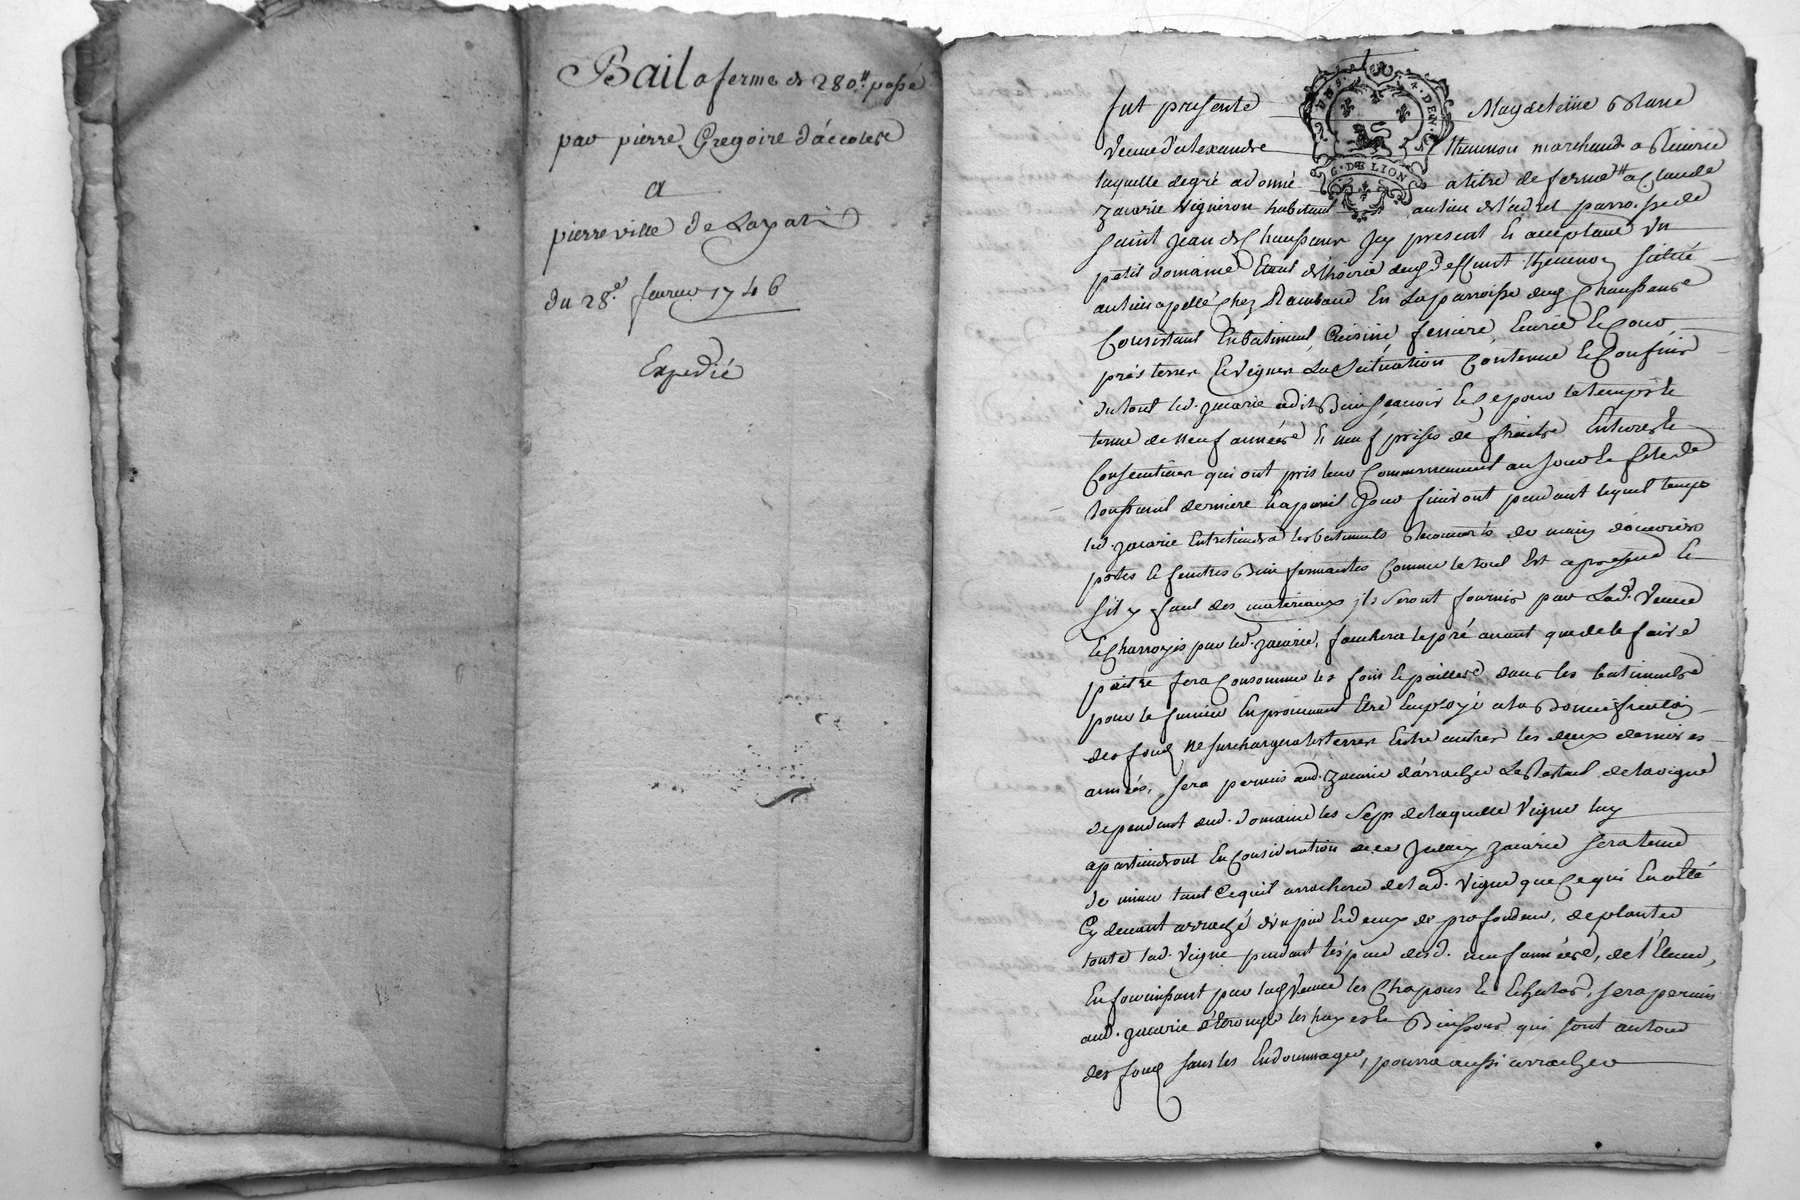 Bail a ferme de 280.ᵗᵗ passé
par pierre Gregoire d'accolere
a
pierre ville de Layati
du 28.e fevrier 1746
Expedié
G. DE LION
fut presente Magdeleine
veuve d'alexandre Thevenon marchand a Riverie
laquelle de gré a donné a titre de ferme a Claude
zacarie vigneron habitant au lieu de l'adret parroisse de
saint jean de Chaussan icy present et acceptant un
petit domaine Etant de l'hoirie dud. deffunt Thevenon situé
au lieu apellé Chez Rambaud En la parroisse dud. Chaussan
Consistant En batiment, Cuisine feniere, Ecurie et Cour,
prés terres et vignes La Situation Contenue et Confins
du tout led. zacarie a dit Bien sçavoir et ce pour le temps et
terme de neuf années et neuf prises de fruits Entieres et
Consecutives qui ont pris leur Commencement au jour et fete de
toussaint derniere et a pareil jour finiront pendant lequel temps
led. zacarie Entretiendra les batiments de main d'ouvrier
portes et fenetres Bien fermantes Comme le tout Est a present Et
s'il y faut des materiaux ils seront fournis par lad. veuve
et Charroyés par led. zacarie, fauchera le pré avant que de le faire
paitre fera Consommer les foin et pailles dans les batiments
pour le fumier En provenant Etre Employé a la Bonnification
des fond ne surchargera les terres Entre autres les deux dernieres
années, sera permis aud. zacarie d'arracher Le Restant de la vigne
dependant dud. domaine les seps de laquelle vigne luy
apartiendront En Consideration de ce zacarie sera tenu
de miner tant Ce quil arrachera de lad. vigne que Ce qui En a Eté
Cy devant arraché d'un pied et deux de profondeur, de planter
toute lad. vigne pendant l'espace desd. neuf années,
En fournissant par lad. veuve les Chapons et sera permis
aud. zacarie d' les hayes et Buissons qui sont autour
des fond sans les Endommager, pourra aussi arracher